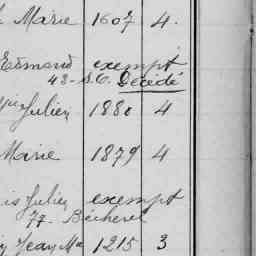 Marie 1607 4.
Edmond exempt
48 - S.C. Décédé
Julien 1880 4
Marie 1879 4
is Julien exempt
77 - Bécherel
Jean Ma 1215 3